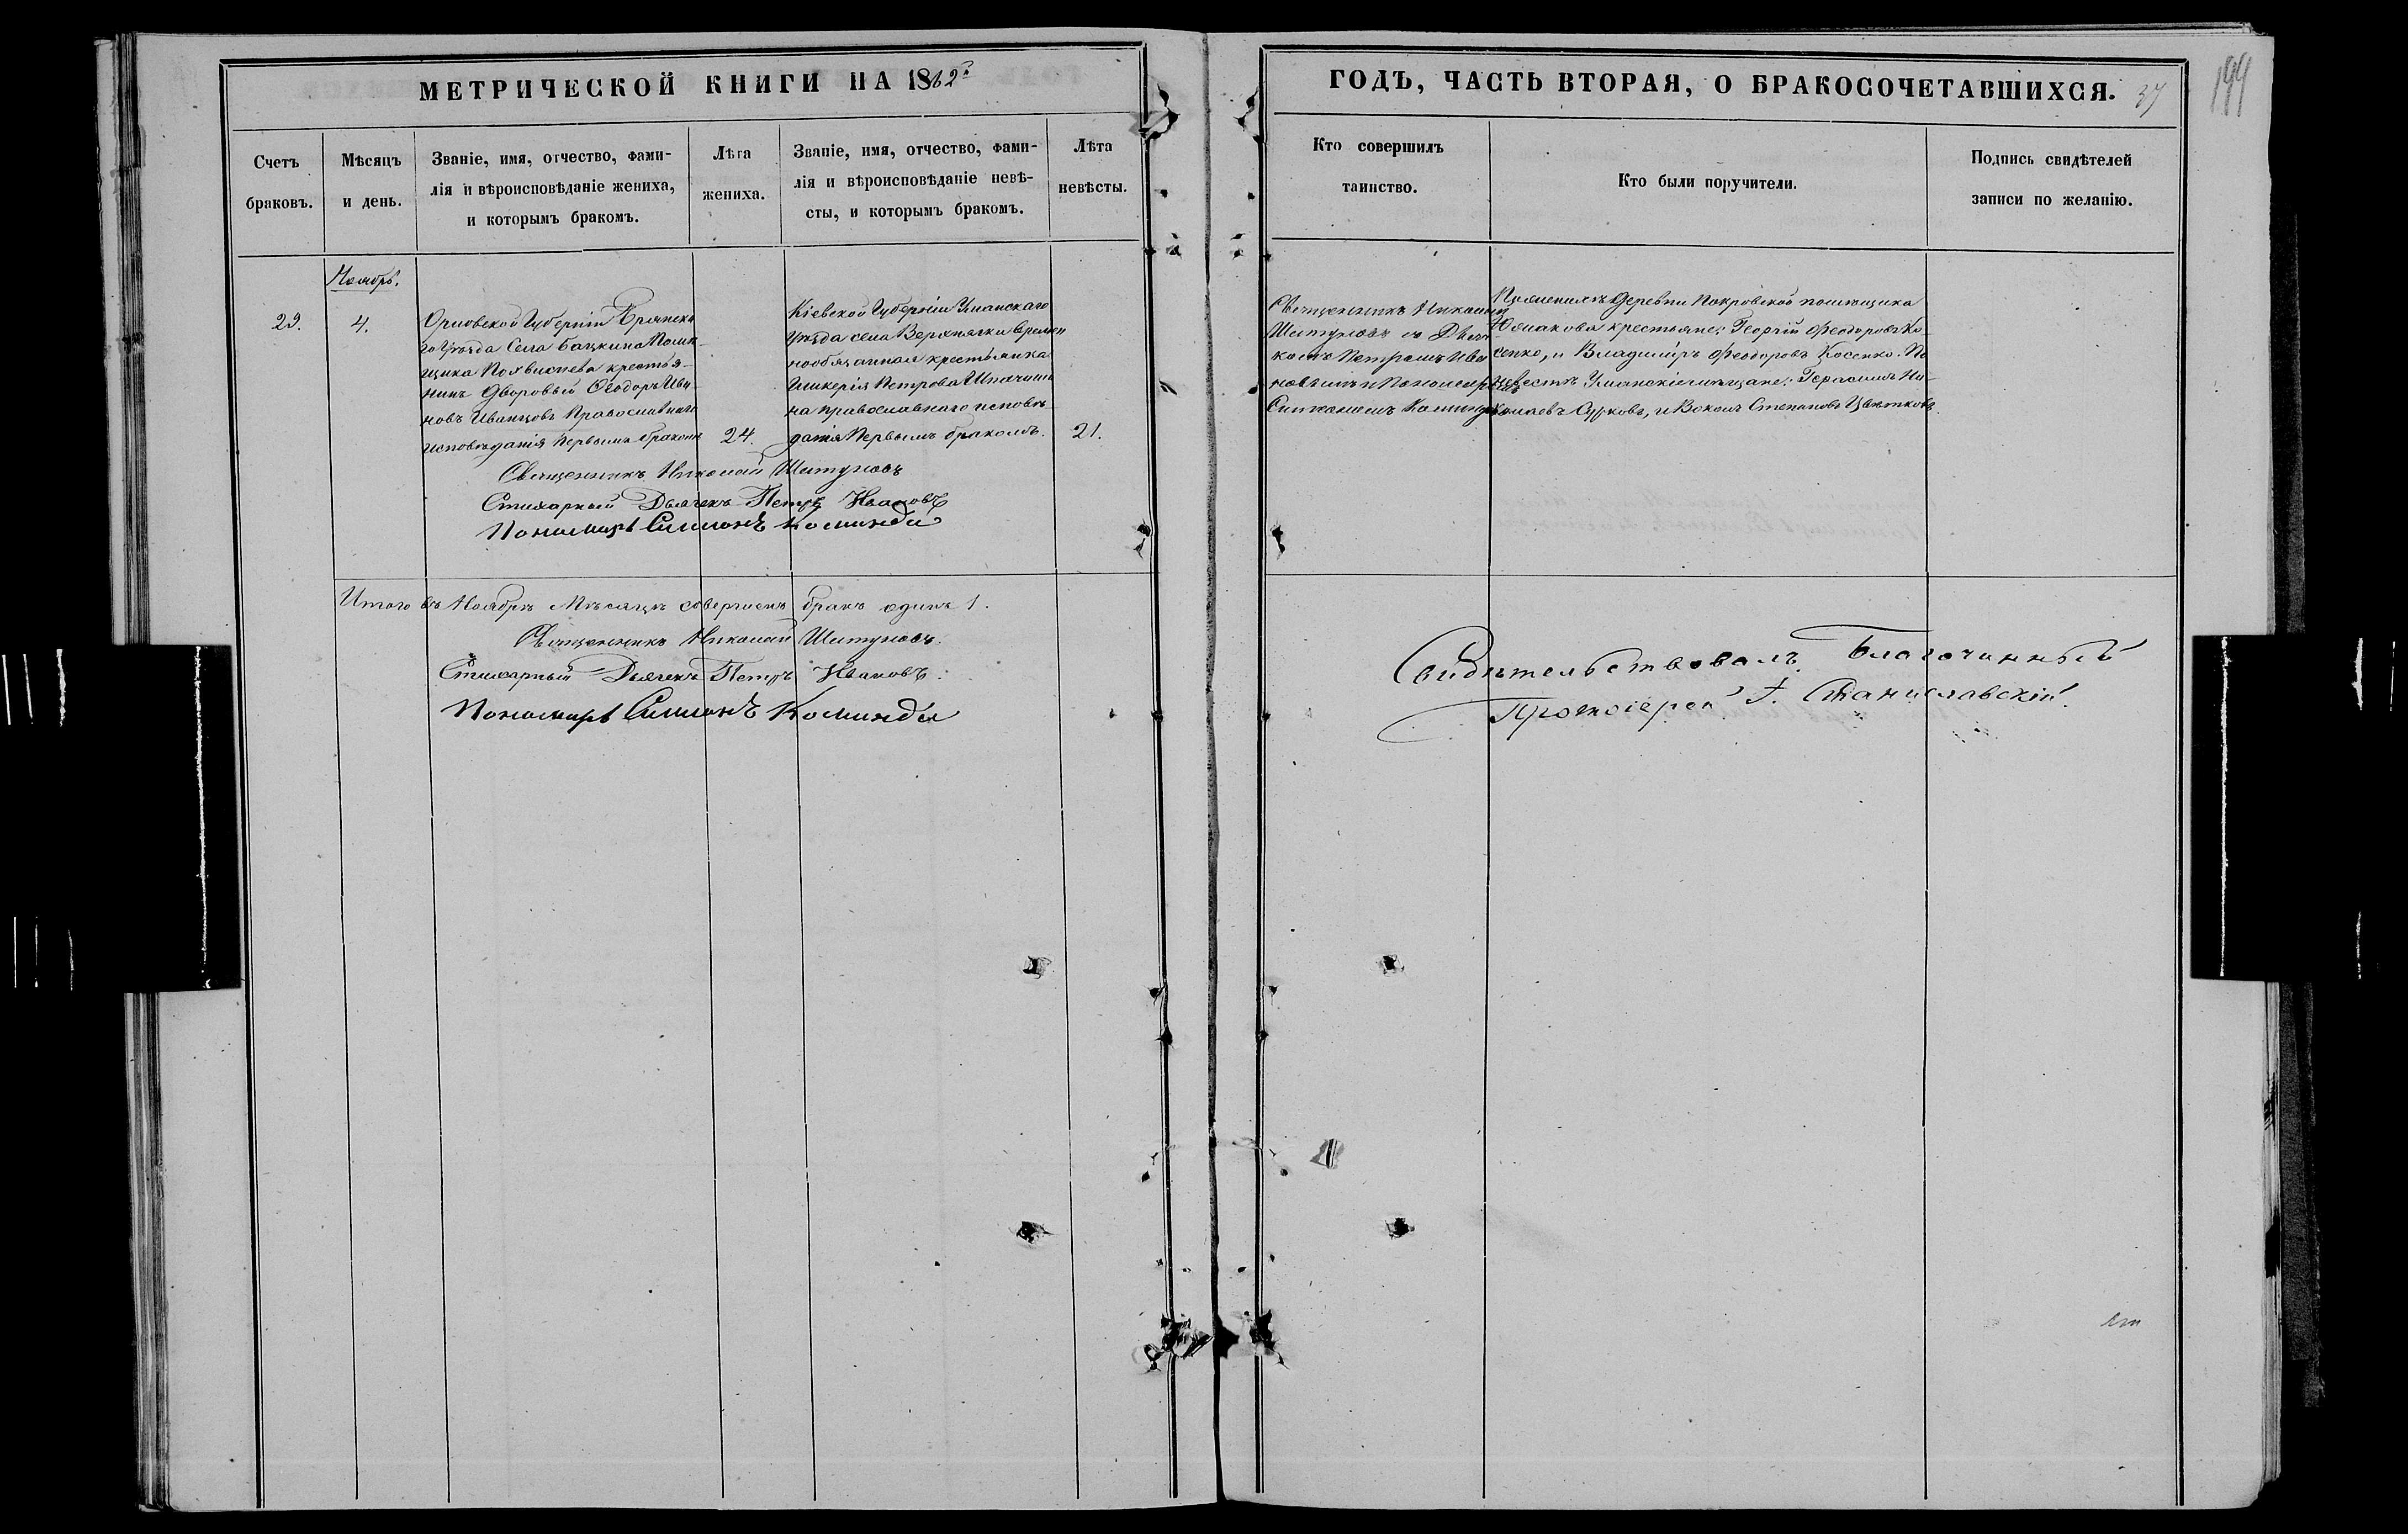 МЕТРИЧЕСКОЙ КНИГИ НА 1862й
ГОДЪ, ЧАСТЬ ВТОРАЯ, О БРАКОСОЧЕТАВШИХСЯ. 37
199
Счетъ
браковъ.
Мѣсяцъ
и день.
Званіе, имя, отчество, фами-
лія и вѣроисповѣданіе жениха,
и которымъ бракомъ.
Лѣта
жениха.
Званіе, имя, отчество, фами-
лія и вѣроисповѣданіе невѣ-
сты, и которымъ бракомъ.
Лѣта
невѣсты.
Кто совершилъ
таинство.
Кто были поручители.
Подпись свидѣтелей
записи по желанію.
Ноябрь.
29.
4.
Орловской Губерніи Брянска
го Уѣзда Села Бацкина Помѣ-
щика крестья-
нинъ Дворовый Ѳеодоръ Ива
новъ Иванцовъ Православнаго
исповѣданія первымъ бракомъ
24.
Кіевской Губерніи Уманскаго
Уѣзда села Верхнячки времен
нообязанная крестьянка
Гликерія Петрова
на православнаго исповѣ
данія Первымъ бракомъ.
21.
Священникъ Николай
Шитуловъ съ Дьяч
комъ Петромъ Ива
новымъ и Пономаремъ
Симеономъ
По женихѣ Деревни Покровской помѣщика
крестьяне: Георгій Ѳеодоровъ Ко-
сенко, и Владиміръ Ѳеодоровъ Косенко. По
невѣстѣ Уманскіе мѣщане: Герасимъ Ни-
колаевъ Сурковъ, и Степановъ Цвѣтковъ.
Священникъ Николай Шитуловъ
Стихарный Дьячекъ Петръ Ивановъ
Пономарь Симионъ Коминда
Итого въ Ноябрѣ Мѣсяцѣ совершенъ бракъ одинъ 1.
Священникъ Николай Шитуловъ.
Стихарный Дьячекъ Петръ Ивановъ.
Пономарь Симионъ Коминда
Свидѣтельствовалъ Благочинный
Протоіерей Г. Станиславскій.